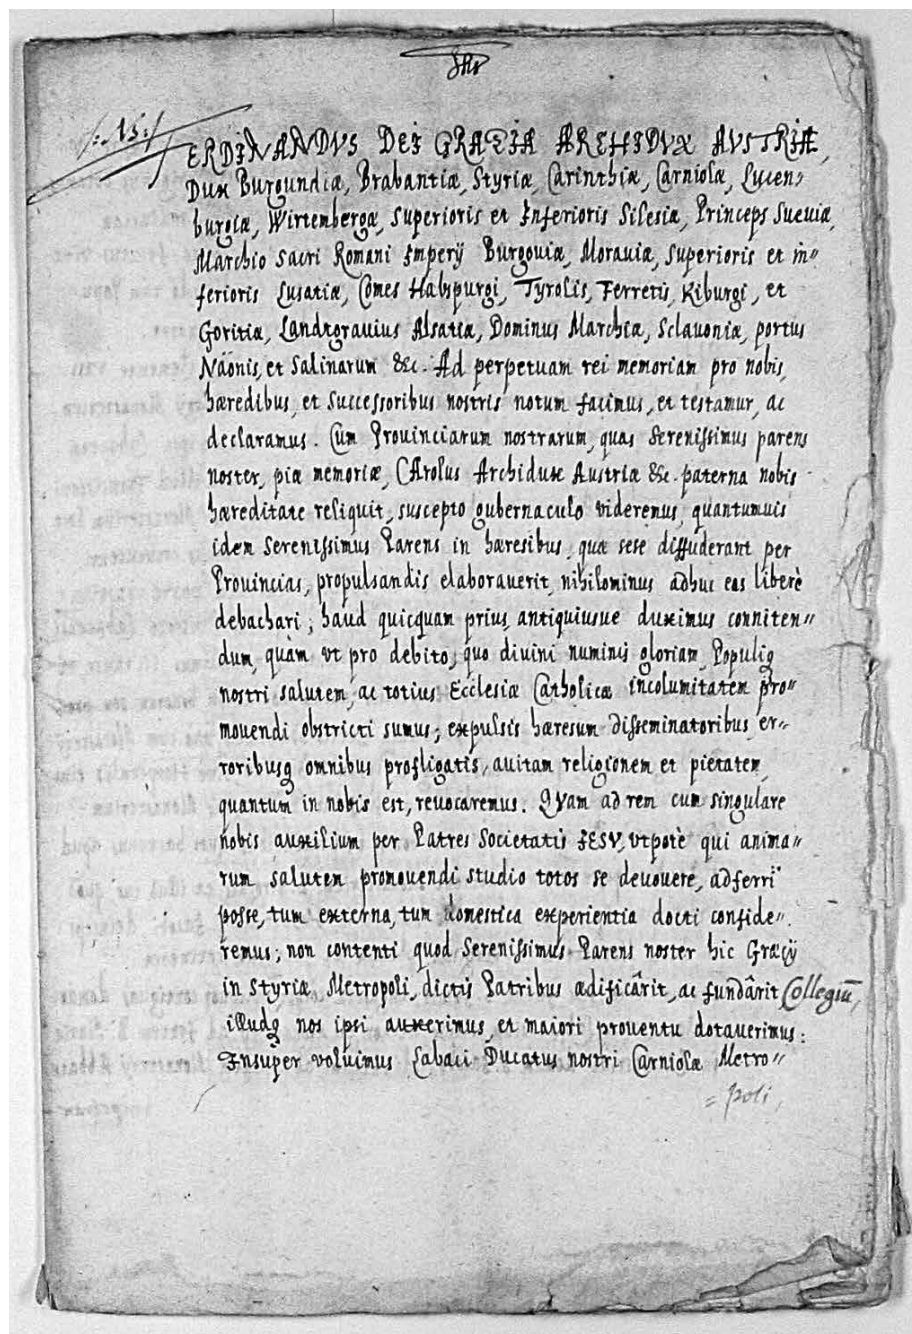 IHS
/:NB:/
FERDINANDVS DEI GRATIA ARCHIDVX AVSTRIÆ,
Dux Burgundiæ, Brabantiæ, Styriæ, Carinthiæ, Carniolæ, Lucem
burgiæ, Wirtembergæ, Superioris et Inferioris Silesiæ, Princeps Sueuiæ,
Marchio Sacri Romani Imperij Burgouiæ, Morauiæ, Superioris et in„
ferioris Lusatiæ, Comes Habspurgi, Tyrolis, Ferretis, Kiburgi, et
Goritiæ, Landtgrauius Alsatiæ, Dominus Marchiæ, Sclauoniæ, portus
Naonis, et Salinarum &c. Ad perpetuam rei memoriam pro nobis,
hæredibus, et Successoribus nostris notum facimus, et testamur, ac
declaramus. Cum Prouinciarum nostrarum, quas Serenissimus parens
noster, piæ memoriæ, CArolus Archidux Austriæ &c. paterna nobis
hæreditate reliquit, suscepto gubernaculo videremus, quantumuis
idem Serenissimus Parens in hæresibus, quæ sese diffuderant per
Prouincias, propulsandis elaborauerit, nihilominus adhuc eas liberè
debachari; haud quicquam prius, antiquiusue duximus conniten„
dum, quàm vt pro debito, quo diuini numinis gloriam, Populiq
nostri salutem, ac totius Ecclesiæ Catholicæ incolumitatem pro„
mouendi obstricti sumus; expulsis hæresum disseminatoribus er„
roribusq omnibus profligatis, auitam religionem et pietatem,
quantum in nobis est, reuocaremus. Quam ad rem cum singulare
nobis auxilium per Patres Societatis IESV, vtpote qui anima„
rum salutem promouendi studio totos se deuouere, adferri
posse, tum externa, tum domestica experientia docti confide„
remus; non contenti quod Serenissimus Parens noster hic Græcij
in Styriæ, Metropoli, dictis Patribus ædificârit, ac fundârit Collegiū,
illudq nos ipsi auxerimus, et maiori prouentu dotauerimus:
Insuper voluimus Labaci Ducatus nostri Carniolæ Metro„
= poli,